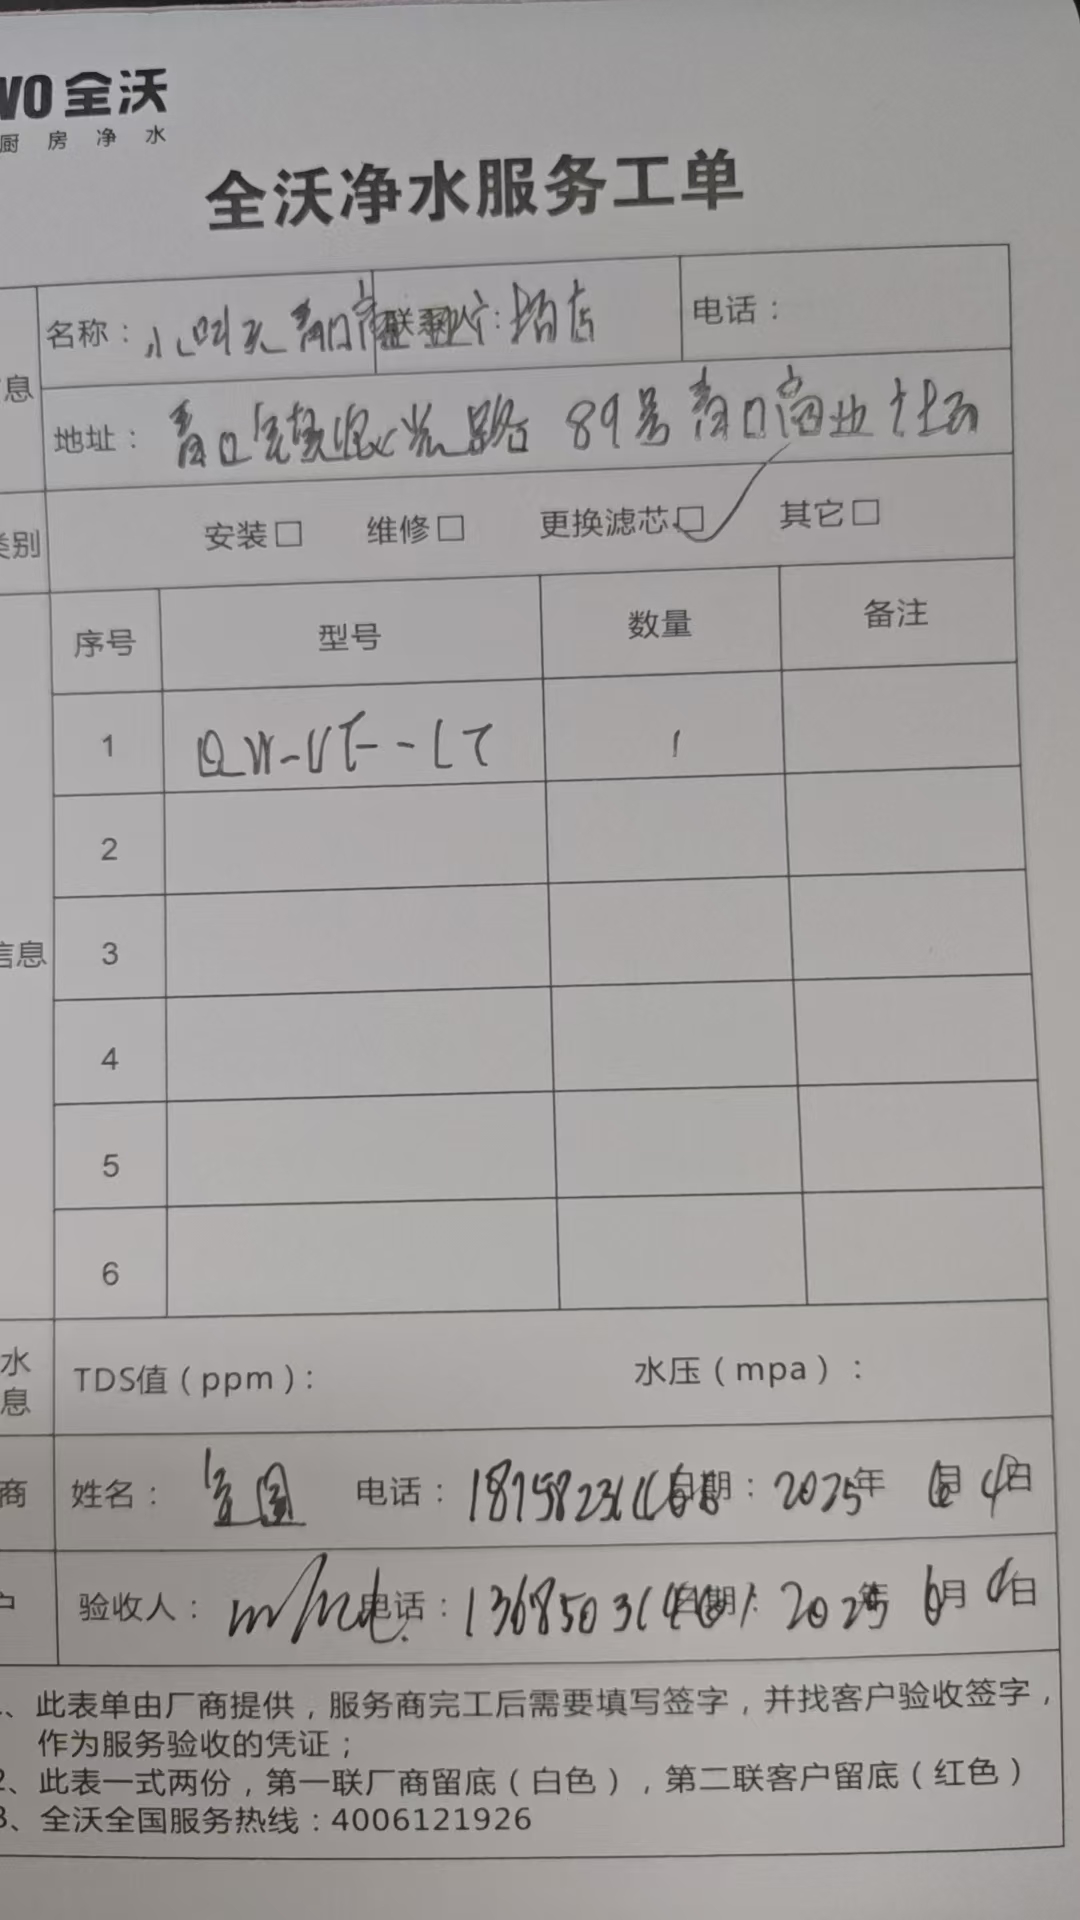 VO 全沃
厨房净水
全沃净水服务工单
息
名称：小叫天青口商业广场店 联系人： 电话：
地址：青口镇 路89号青口商业广场
类别
安装□ 维修□ 更换滤芯□✓ 其它□
序号 型号 数量 备注
1 QW-UF--LT 1
2
3
信息
4
5
6
水
息
TDS值（ppm）： 水压（mpa）：
商
姓名： 电话： 日期：2025年6月4日
户
验收人： 电话： 日期：2025年6月4日
、此表单由厂商提供，服务商完工后需要填写签字，并找客户验收签字，
作为服务验收的凭证；
2、此表一式两份，第一联厂商留底（白色），第二联客户留底（红色）
3、全沃全国服务热线：4006121926